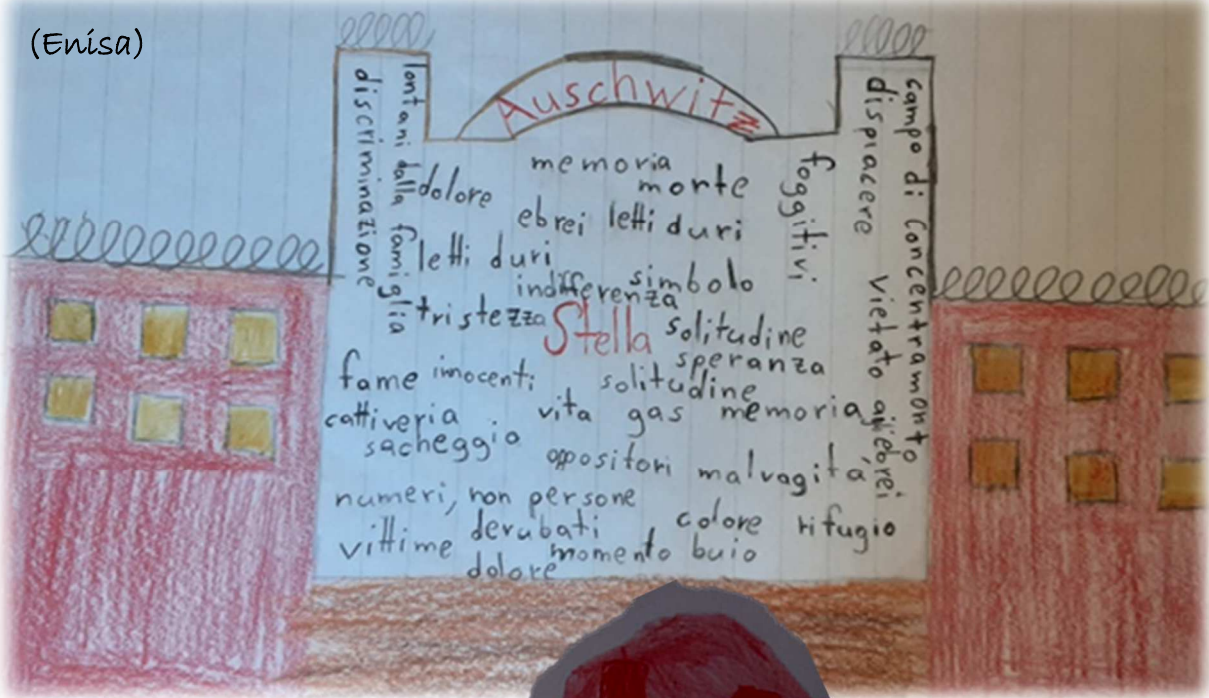 (Enisa)
Auschwitz
lontani dalla famiglia
discriminazione
campo di concentramonto
dispiacere vietato agli ebrei
foggitivi
memoria
dolore
morte
ebrei letti duri
letti duri
simbolo
indifferenza
tristezza
Stella
solitudine
speranza
fame innocenti
solitudine
cattiveria
vita gas memoria
sacheggio
oppositori malvagità
numeri, non persone
derubati
colore rifugio
vittime
momento buio
dolore